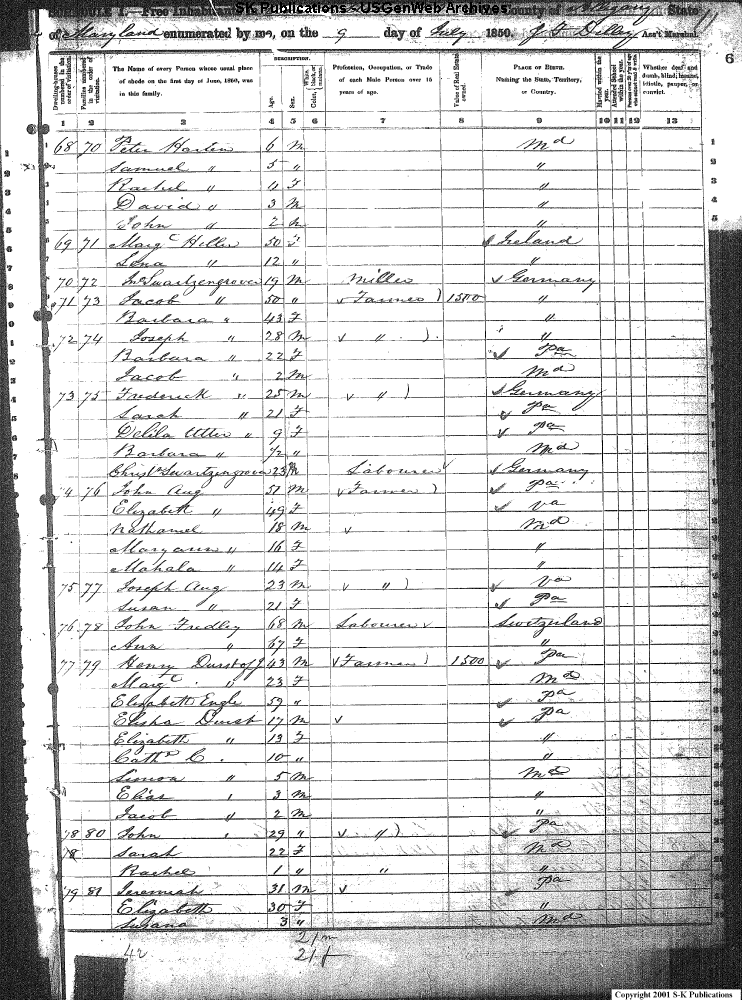 SK Publications - USGenWeb Archives
Free Inhabitants County of Allegany State
of Maryland enumerated by me, on the 9 day of July 1850. J F Dilley Ass't Marshal.
11
6
Dwelling-houses numbered in the order of visitation.
Families numbered in the order of visitation.
The Name of every Person whose usual place of abode on the first day of June, 1850, was in this family.
DESCRIPTION.
Age.
Sex.
Color, White, black, or mulatto.
Profession, Occupation, or Trade of each Male Person over 15 years of age.
Value of Real Estate owned.
PLACE OF BIRTH. Naming the State, Territory, or Country.
Married within the year.
Attended School within the year.
Whether deaf and dumb, blind, insane, idiotic, pauper, or convict.
1 2 3 4 5 6 7 8 9 10 11 12 13
68 70 Peter Harlin 6 M Md
Samuel " 5 " "
Rachel " 4 F "
David " 3 M "
John " 2 M "
69 71 Margt Hiller 50 F Ireland
Lena " 12 " "
70 72 Jno Swartzengrover 19 M Miller Germany
71 73 Jacob " 50 " Farmer 1500 "
Barbara " 43 F "
72 74 Joseph " 28 M " "
Barbara " 22 F Pa
Jacob " 2 M Md
73 75 Frederick " 25 M " Germany
Sarah " 21 F Pa
Delila Utter " 9 F Pa
Barbara " 1/2 " Md
Christn Swartzengrover 23 M Labourer Germany
74 76 John Aug 51 M Farmer Pa
Elizabeth " 49 F Va
Nathaniel 18 M Md
Maryann " 16 F "
Mahala " 14 F "
75 77 Joseph Aug 23 M " Va
Susan " 21 F Pa
76 78 John Fredley 68 M Labourer Switzerland
Ann " 67 F "
77 79 Henry Durst of J 43 M Farmer 1500 Pa
Margt " 23 F Md
Elizabeth Engle 59 " Pa
Elisha Durst 17 M Pa
Elizabeth " 13 F "
Cathe C. 10 " "
Simon " 5 M Md
Elias 3 M "
Jacob " 2 M "
78 80 John 29 " " Pa
78 Sarah 22 F Md
Rachel 1 " " "
79 81 Jeremiah 31 M Pa
Elizabeth 30 F "
Susana 3 " Md
42
21 m
21 f
Copyright 2001 S-K Publications